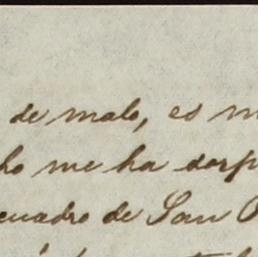 de malo, es m
ho me ha sorp
cuadro de San